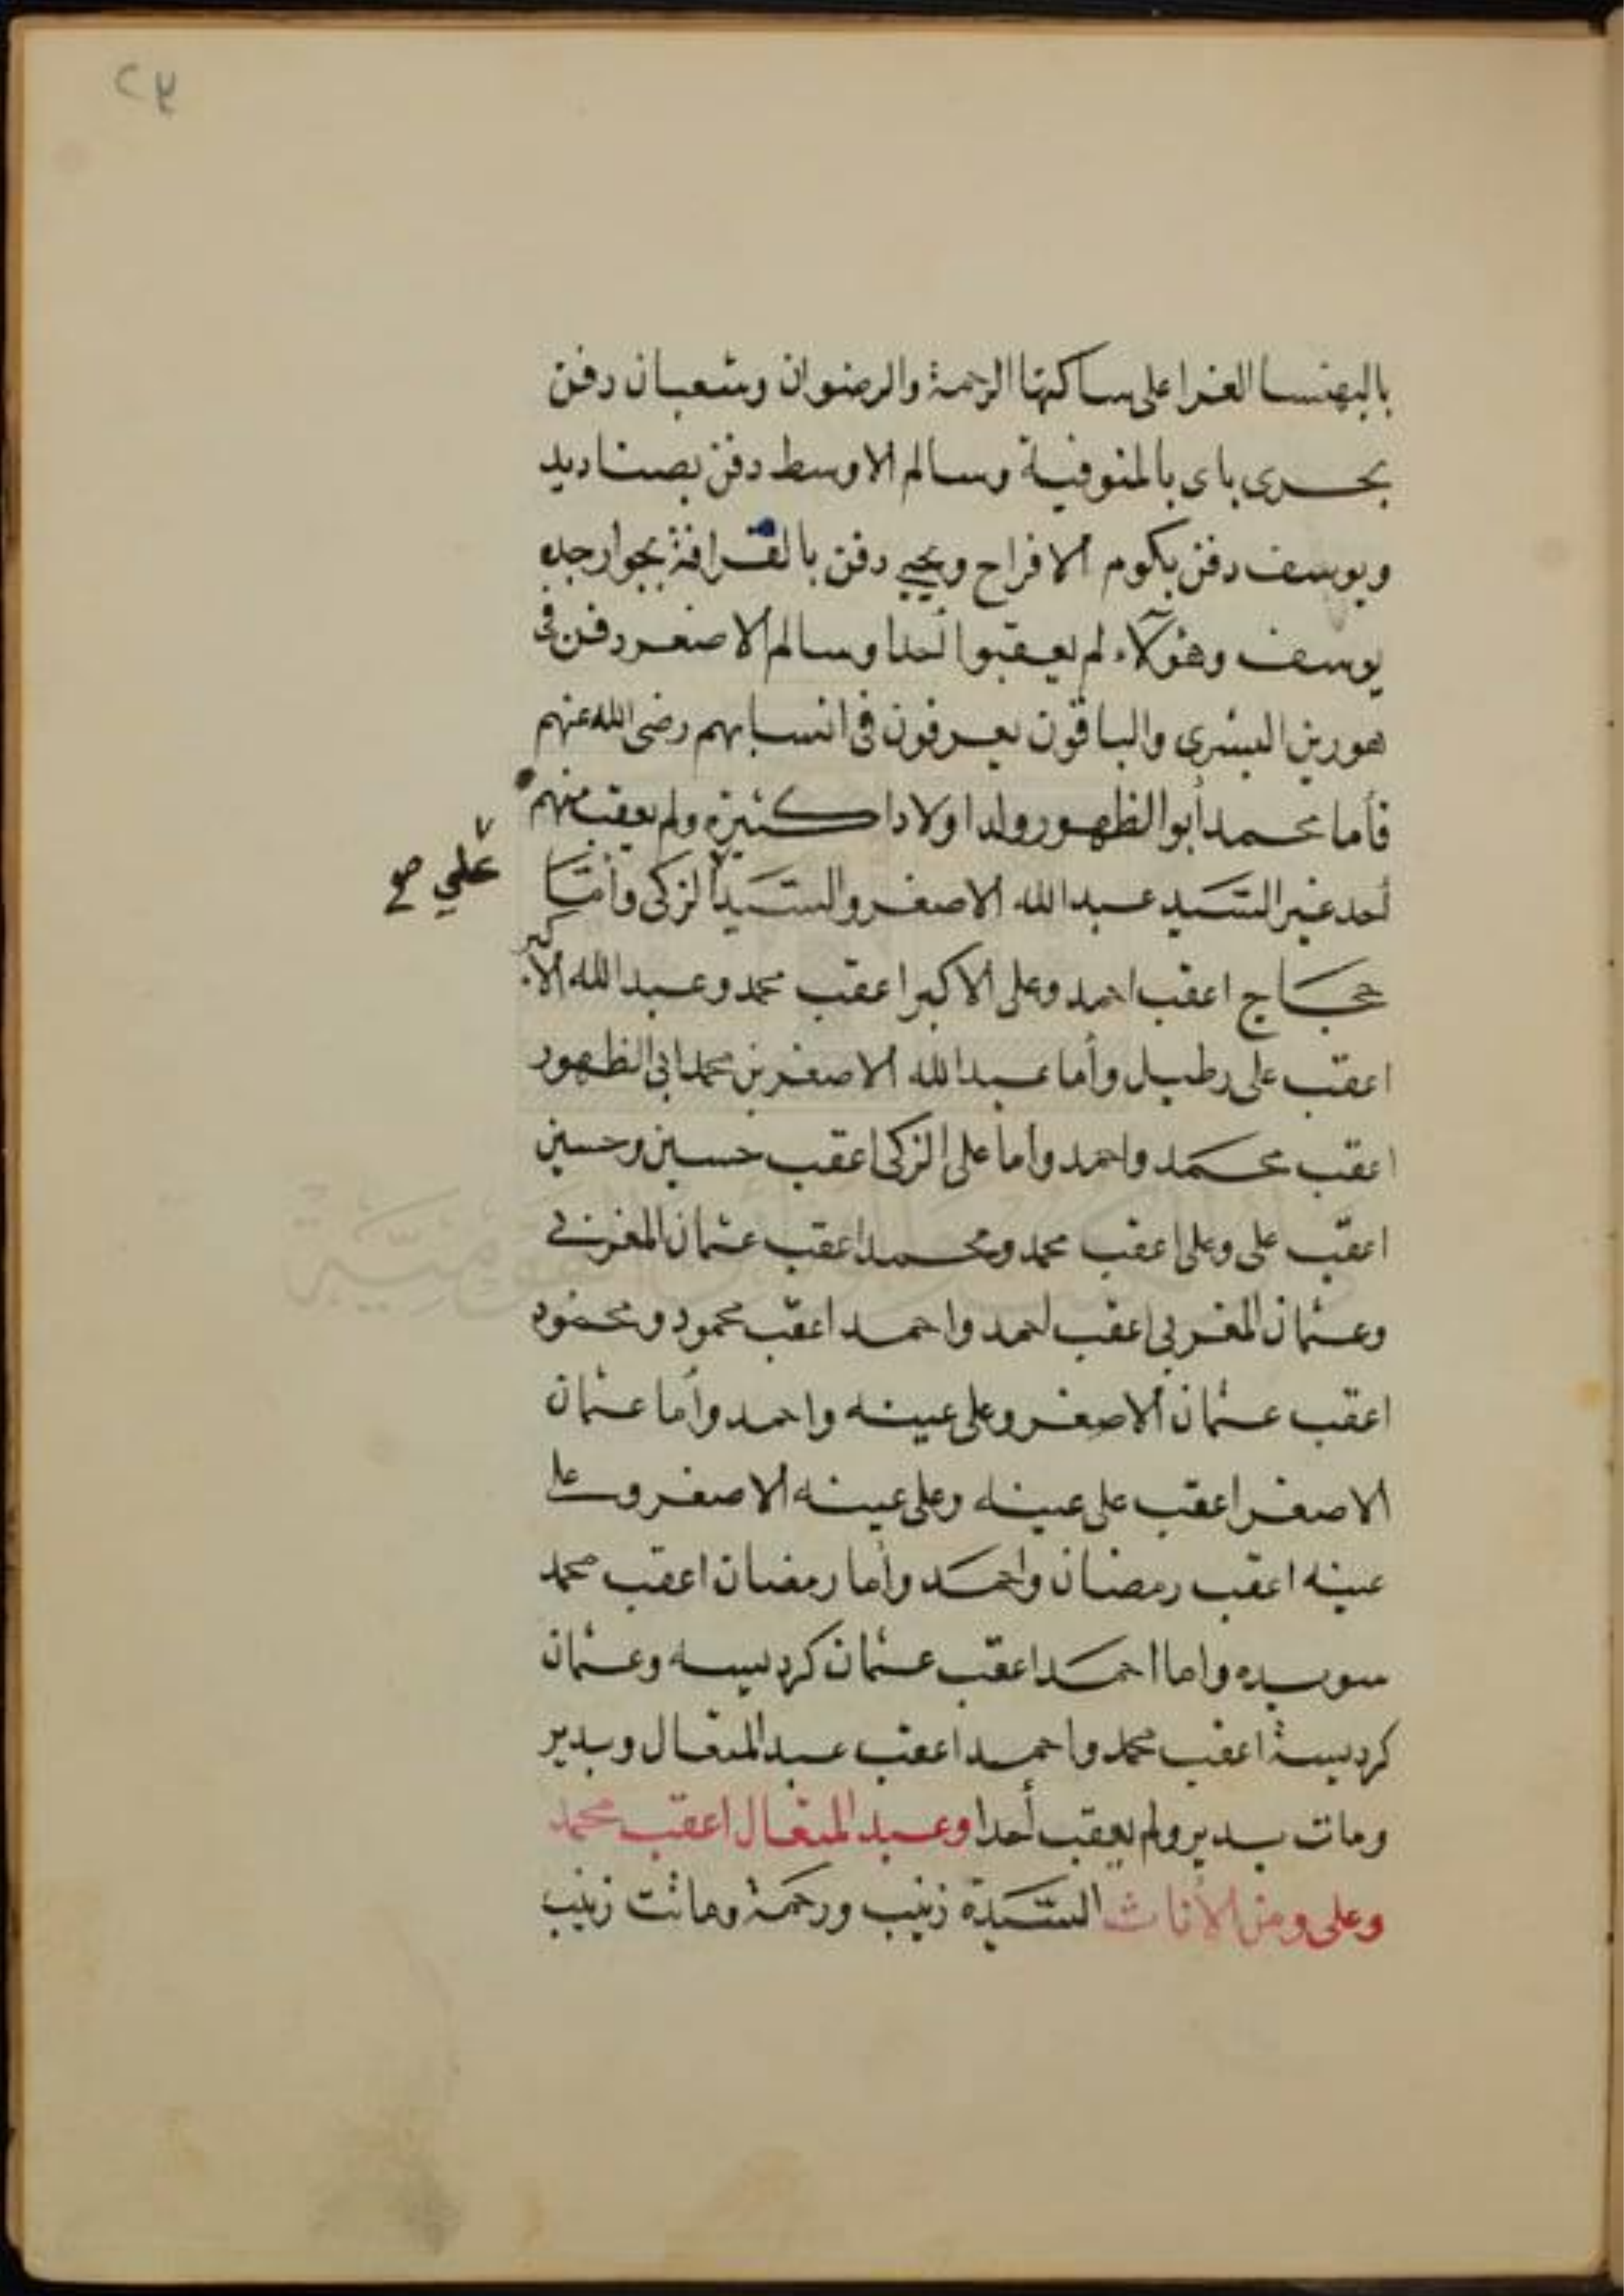 ٢٣
بالبهنسا الغرا على ساكنها الرحمة والرضوان وشعبان دفن
بحرى باى بالمنوفية وسالم الاوسط دفن بصناديد
ويوسف دفن بكوم الافراح ويحيي دفن بالقرافة بجوار جده
يوسف وهؤلآء لم يعقبوا أحدا وسالم الاصغر دفن فى
هورين البشرى والباقون يعرفون فى انسابهم رضى الله عنهم
فأما محمد أبو الظهور ولد اولادا كثيرة ولم يعقب منهم
أحد غير السيد عبد الله الاصغر والسيد الزكى وأما
علي صح
حجاج اعقب احمد وعلى الاكبر اعقب محمد وعبد الله الاكبر
اعقب على رطيل وأما عبد الله الاصغر بن محمد ابى الظهور
اعقب محمد واحمد واما على الزكى اعقب حسين وحسين
اعقب على وعلى اعقب محمد ومحمد اعقب عثمان المغربى
وعثمان المغربى اعقب احمد واحمد اعقب محمود ومحمود
اعقب عثمان الاصغر وعلى عينه واحمد وأما عثمان
الاصغر اعقب على عينه وعلى عينه الاصغر وعلى
عينه اعقب رمضان واحمد وأما رمضان اعقب محمد
سويده واما احمد اعقب عثمان كرديسه وعثمان
كرديسة اعقب محمد واحمد اعقب عبد المتعال وبدير
ومات بدير ولم يعقب أحدا وعبد المتعال اعقب محمد
وعلى ومن الأناث السيدة زينب ورحمة وماتت زينب